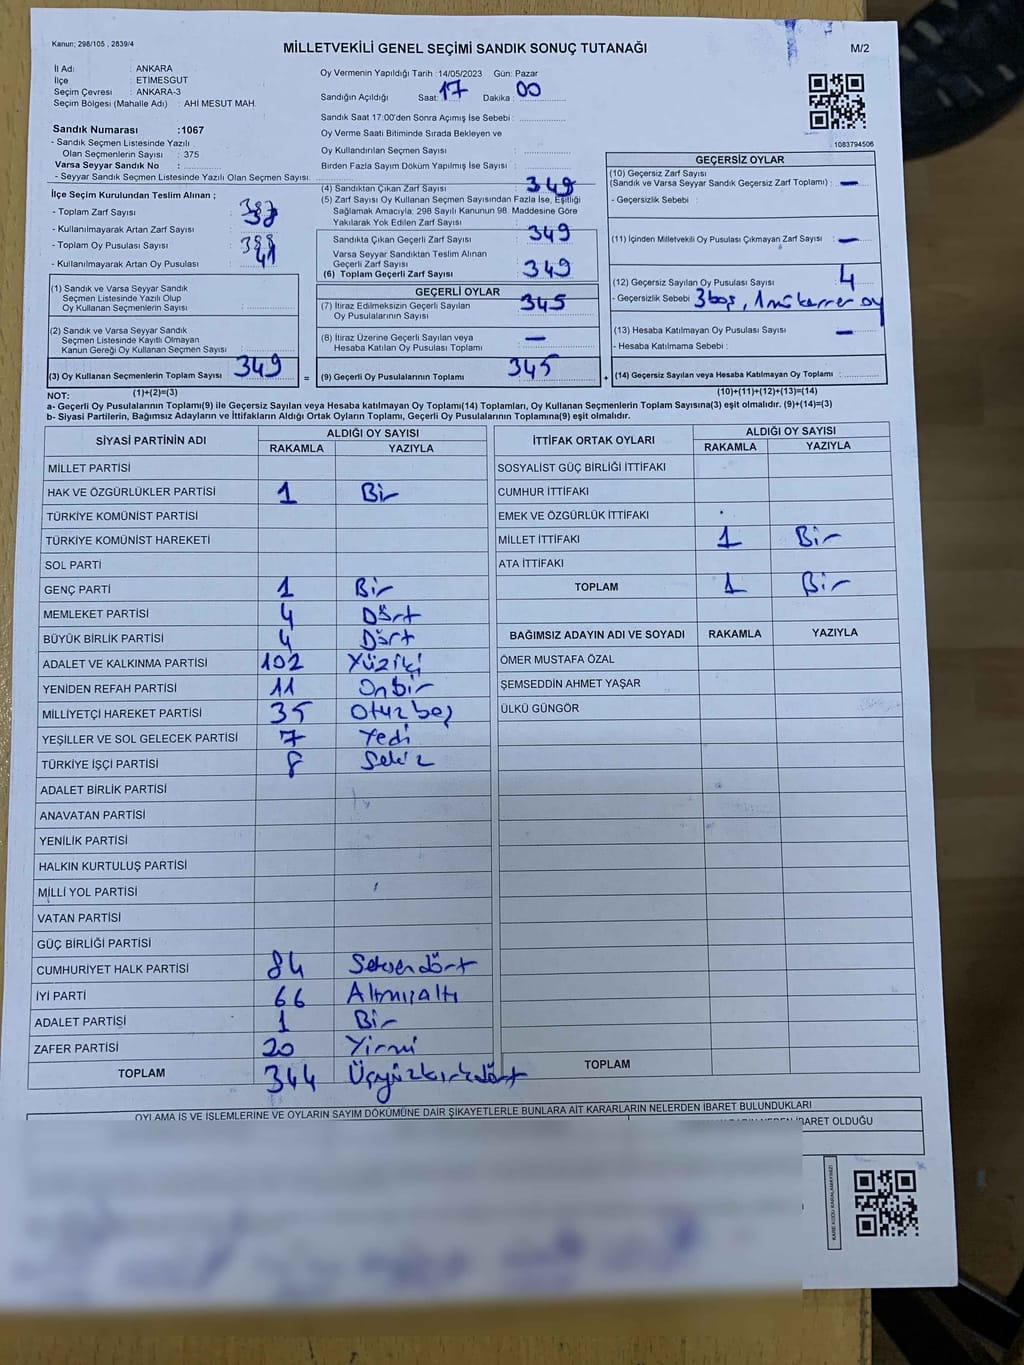 Kanun; 298/105 , 2839/4
MİLLETVEKİLİ GENEL SEÇİMİ SANDIK SONUÇ TUTANAĞI
M/2
İl Adı : ANKARA
İlçe : ETİMESGUT
Seçim Çevresi : ANKARA-3
Seçim Bölgesi (Mahalle Adı) : AHİ MESUT MAH.
Sandık Numarası :1067
- Sandık Seçmen Listesinde Yazılı
Olan Seçmenlerin Sayısı : 375
Varsa Seyyar Sandık No :
- Seyyar Sandık Seçmen Listesinde Yazılı Olan Seçmen Sayısı:
Oy Vermenin Yapıldığı Tarih :14/05/2023 Gün: Pazar
Sandığın Açıldığı Saat: 17 Dakika : 00
Sandık Saat 17:00'den Sonra Açımış İse Sebebi :
Oy Verme Saati Bitiminde Sırada Bekleyen ve
Oy Kullandırılan Seçmen Sayısı :
Birden Fazla Sayım Döküm Yapılmış İse Sayısı :
1083794506
İlçe Seçim Kurulundan Teslim Alınan ;
- Toplam Zarf Sayısı :
- Kullanılmayarak Artan Zarf Sayısı :
- Toplam Oy Pusulası Sayısı :
- Kullanılmayarak Artan Oy Pusulası : 41
(1) Sandık ve Varsa Seyyar Sandık
Seçmen Listesinde Yazılı Olup
Oy Kullanan Seçmenlerin Sayısı :
(2) Sandık ve Varsa Seyyar Sandık
Seçmen Listesinde Kayıtlı Olmayan
Kanun Gereği Oy Kullanan Seçmen Sayısı :
(3) Oy Kullanan Seçmenlerin Toplam Sayısı : 349
(4) Sandıktan Çıkan Zarf Sayısı : 349
(5) Zarf Sayısı Oy Kullanan Seçmen Sayısından Fazla İse, Eşitliği
Sağlamak Amacıyla; 298 Sayılı Kanunun 98. Maddesine Göre
Yakılarak Yok Edilen Zarf Sayısı :
Sandıkta Çıkan Geçerli Zarf Sayısı : 349
Varsa Seyyar Sandıktan Teslim Alınan
Geçerli Zarf Sayısı :
(6) Toplam Geçerli Zarf Sayısı : 349
GEÇERLİ OYLAR
(7) İtiraz Edilmeksizin Geçerli Sayılan
Oy Pusulalarının Sayısı : 345
(8) İtiraz Üzerine Geçerli Sayılan veya
Hesaba Katılan Oy Pusulası Toplamı : —
= (9) Geçerli Oy Pusulalarının Toplamı : 345
GEÇERSİZ OYLAR
(10) Geçersiz Zarf Sayısı
(Sandık ve Varsa Seyyar Sandık Geçersiz Zarf Toplamı) : —
- Geçersizlik Sebebi :
(11) İçinden Milletvekili Oy Pusulası Çıkmayan Zarf Sayısı : —
(12) Geçersiz Sayılan Oy Pusulası Sayısı : 4
- Geçersizlik Sebebi : 3 boş, 1 mükerrer oy
(13) Hesaba Katılmayan Oy Pusulası Sayısı : —
- Hesaba Katılmama Sebebi :
+ (14) Geçersiz Sayılan veya Hesaba Katılmayan Oy Toplamı :
NOT: (1)+(2)=(3) (10)+(11)+(12)+(13)=(14)
a- Geçerli Oy Pusulalarının Toplamı(9) ile Geçersiz Sayılan veya Hesaba katılmayan Oy Toplamı(14) Toplamları, Oy Kullanan Seçmenlerin Toplam Sayısına(3) eşit olmalıdır. (9)+(14)=(3)
b- Siyasi Partilerin, Bağımsız Adayların ve İttifakların Aldığı Ortak Oyların Toplamı, Geçerli Oy Pusulalarının Toplamına(9) eşit olmalıdır.
SİYASİ PARTİNİN ADI ALDIĞI OY SAYISI
RAKAMLA YAZIYLA
MİLLET PARTİSİ
HAK VE ÖZGÜRLÜKLER PARTİSİ 1 Bir
TÜRKİYE KOMÜNİST PARTİSİ
TÜRKİYE KOMÜNİST HAREKETİ
SOL PARTİ
GENÇ PARTİ 1 Bir
MEMLEKET PARTİSİ 4 Dört
BÜYÜK BİRLİK PARTİSİ 4 Dört
ADALET VE KALKINMA PARTİSİ 102 Yüziki
YENİDEN REFAH PARTİSİ 11 Onbir
MİLLİYETÇİ HAREKET PARTİSİ 35 Otuzbeş
YEŞİLLER VE SOL GELECEK PARTİSİ 7 Yedi
TÜRKİYE İŞÇİ PARTİSİ 8 Sekiz
ADALET BİRLİK PARTİSİ
ANAVATAN PARTİSİ
YENİLİK PARTİSİ
HALKIN KURTULUŞ PARTİSİ
MİLLİ YOL PARTİSİ
VATAN PARTİSİ
GÜÇ BİRLİĞİ PARTİSİ
CUMHURİYET HALK PARTİSİ 84 Seksendört
İYİ PARTİ 66 Altmışaltı
ADALET PARTİSİ 1 Bir
ZAFER PARTİSİ 20 Yirmi
TOPLAM 344 Üçyüzkırkdört
İTTİFAK ORTAK OYLARI ALDIĞI OY SAYISI
RAKAMLA YAZIYLA
SOSYALİST GÜÇ BİRLİĞİ İTTİFAKI
CUMHUR İTTİFAKI
EMEK VE ÖZGÜRLÜK İTTİFAKI
MİLLET İTTİFAKI 1 Bir
ATA İTTİFAKI
TOPLAM 1 Bir
BAĞIMSIZ ADAYIN ADI VE SOYADI RAKAMLA YAZIYLA
ÖMER MUSTAFA ÖZAL
ŞEMSEDDİN AHMET YAŞAR
ÜLKÜ GÜNGÖR
TOPLAM
OYLAMA İŞ VE İŞLEMLERİNE VE OYLARIN SAYIM DÖKÜMÜNE DAİR ŞİKAYETLERLE BUNLARA AİT KARARLARIN NELERDEN İBARET BULUNDUKLARI
İBARET OLDUĞU
KARE KODU KARALAMAYINIZ